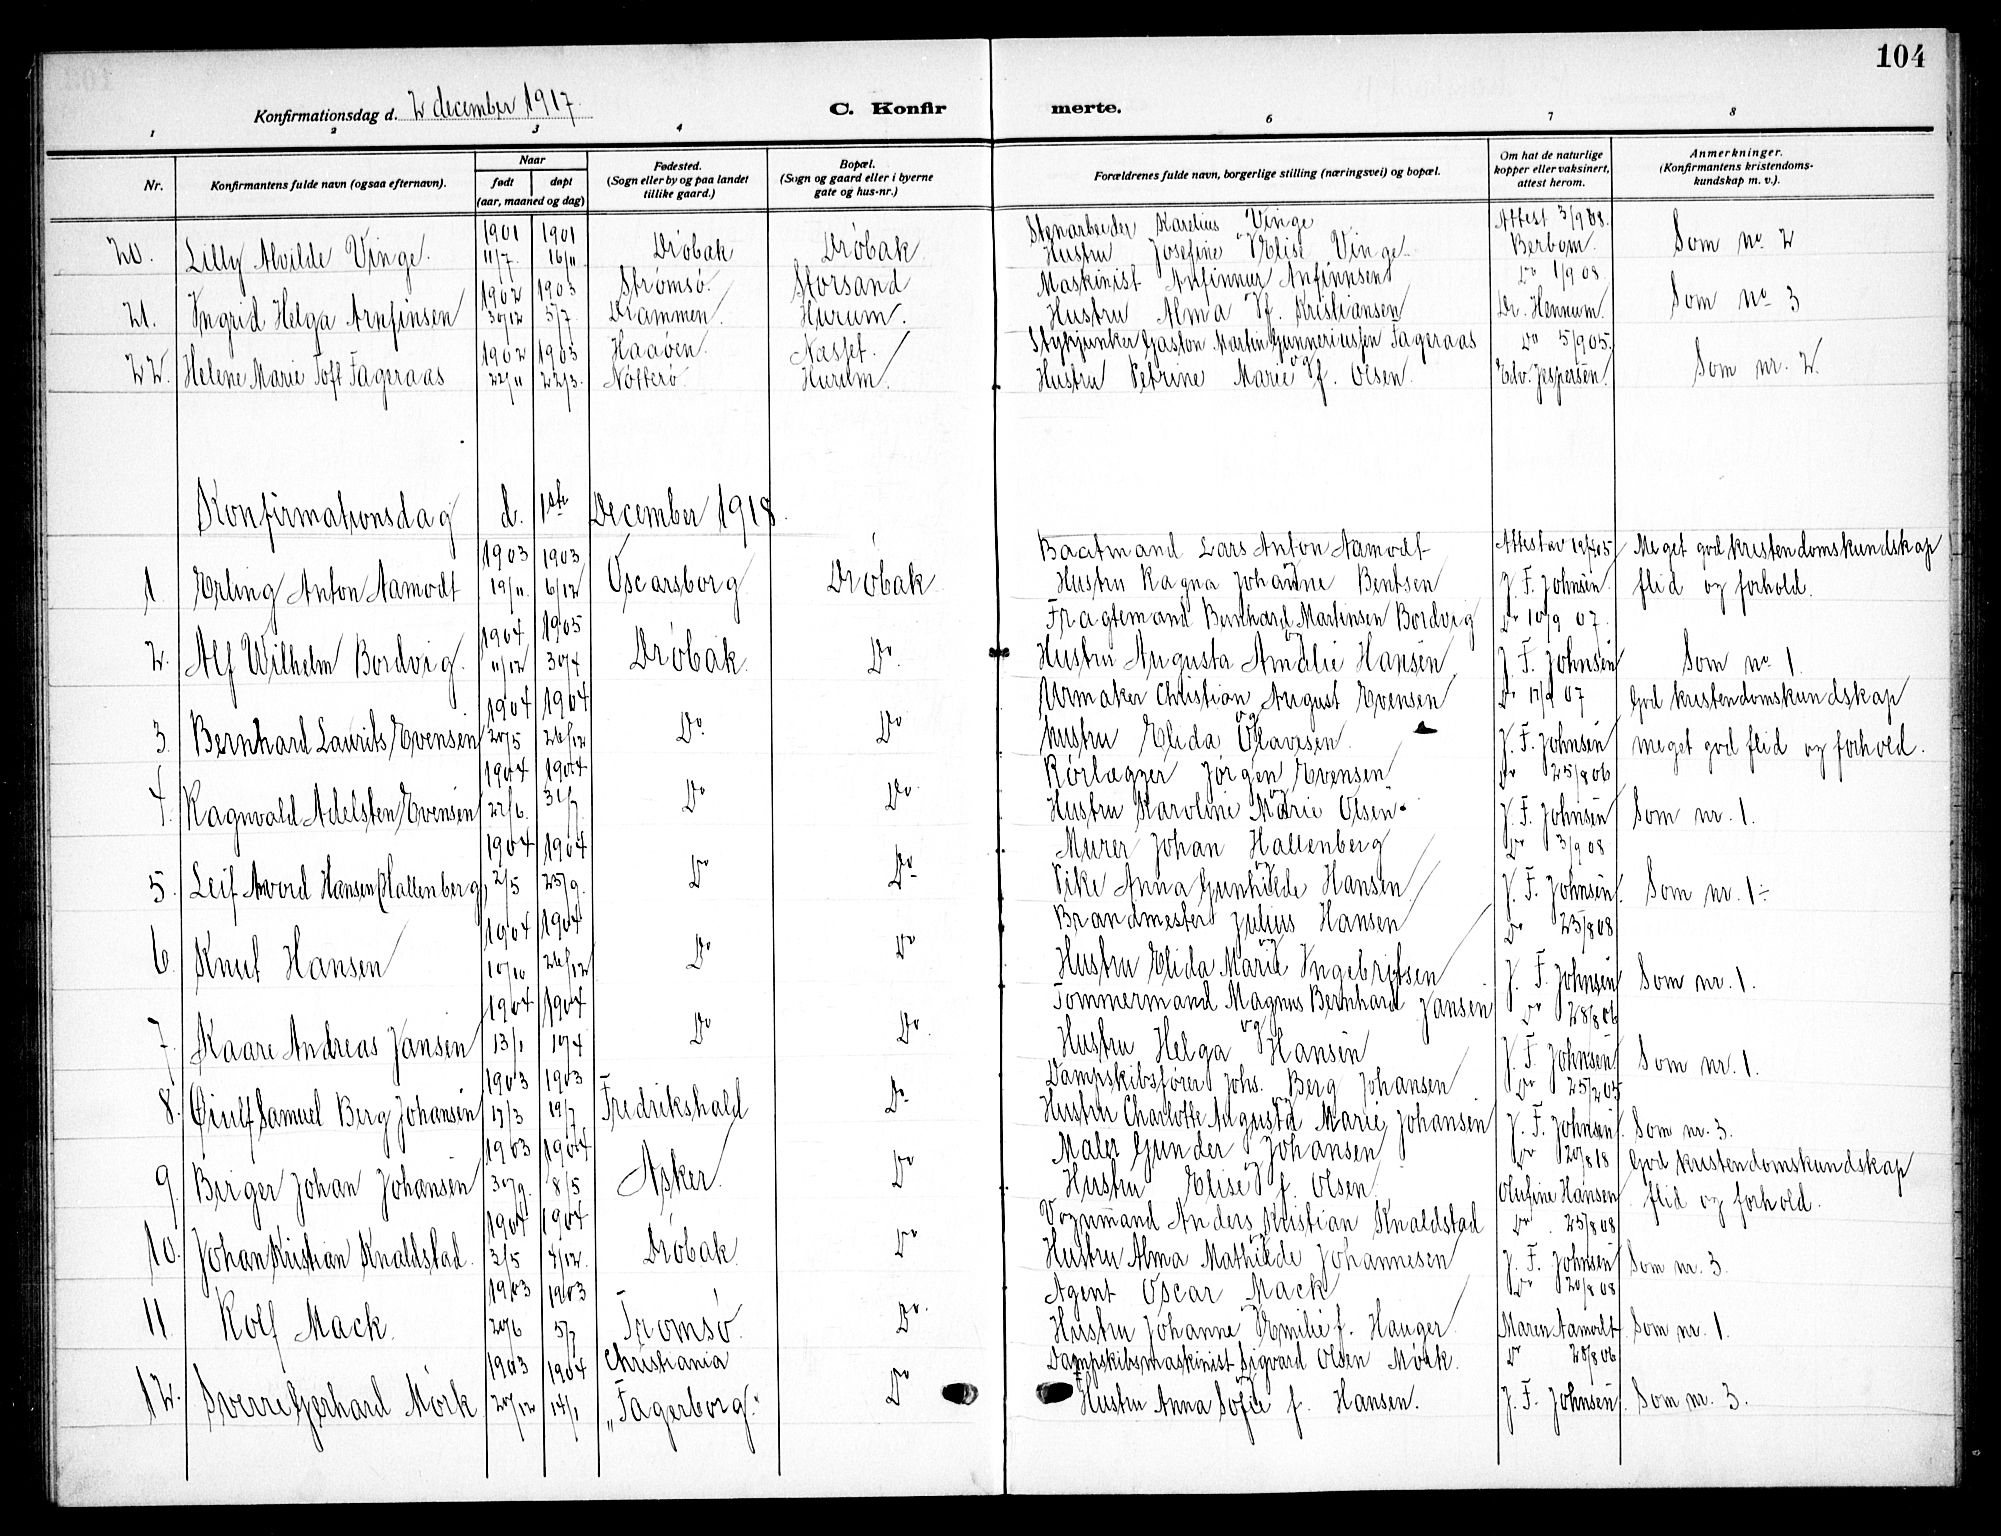 104
Konfirmationsdag d. 2 december 1917.
C. Konfirmerte.
1 2 3 4 6 7 8
Nr.
Konfirmantens fulde navn (ogsaa efternavn).
Naar
født døpt
(aar, maaned og dag)
Fødested.
(Sogn eller by og paa landet
tillike gaard.)
Bopæl.
(Sogn og gaard eller i byerne
gate og hus-nr.)
Forældrenes fulde navn, borgerlige stilling (næringsvei) og bopæl.
Om hat de naturlige
kopper eller vaksinert,
attest herom.
Anmerkninger.
(Konfirmantens kristendoms-
kundskap m. v.).
1901 1901 Stenarbeider Karelius Vinge Attest 3/9 08.
20. Lilly Alvilde Vinge. 11/7. 16/11. Drøbak Drøbak. Hustru Josefine Elise Vinge Som no. 2
1902 1903 Strømsø. Storsand Maskinist Anfinnsen Do 1/9 08.
21. Ingrid Helga Arnfinsen 30/12 5/7. Drammen. Hurum. Hustru Alma f. Kristiansen Dr. Hennum. Som no. 3
1902 1903 Haaøen. Næsset. Stykjunker Gaston Martin Gunneriussen Fageraas Do 5/9 05.
22. Helene Marie Toft Fageraas 22/11 22/3. Nøtterø. Hurum. Hustru Petrine Marie f. Olsen. Edv. Jespersen. Som nr. 2.
Konfirmationsdag d. 1ste December 1918.
1903 1903 Baatmand Lars Anton Aamodt Attest av Meget god kristendomskundskap
1 Erling Anton Aamodt 19/11. 6/12 Oscarsborg Drøbak Hustru Ragna Johanne Bentsen J. F. Johnsen. flid og forhold.
1904 1905 Fragtemand Bernhard Martinsen Bordvig Do 10/9 07.
2. Alf Wilhelm Bordvig. 11/12 30/4 Drøbak. Do. Hustru Augusta Amalie Hansen J. F. Johnsen Som no. 1.
1904 1904 Urmaker Christian August Evensen Do 07 God kristendomskundskap
3. Bernhard Laurits Evensen 20/5 26/12 Do. Do Hustru Elida Olavesen. J. F. Johnsen meget god flid og forhold.
1904 1904 Rørlægger Jørgen Evensen Do 25/8 06
4. Ragnvald Adelsten Evensen 22/6. 31/7. Do Do Hustru Karoline Marie Olsen. J. F. Johnsen Som nr. 1.
1904 1904 Murer Johan Hallenberg Do 3/9 08
5. Leif Hansen (Hallenberg) 2/5 25/9. Do Do Pike Anna Gunhilde Hansen J. F. Johnsen. Som nr. 1 ÷
1904 1904 Brandmester Julius Hansen Do 25/8 08
6. Knut Hansen 10/10 26/12 Do Do Hustru Elida Marie Ingebritsen J. F. Johnsen Som nr. 1.
1904 1904 Tømmermand Magnus Bernhard Jansen Do 28/8 06
7. Kaare Andreas Jansen 13/1 10/4 Do Do. Hustru Helga Hansen J. F. Johnsen Som nr. 1.
1903 1903 Dampskibsfører Johs. Berg Johansen Do
8. Øiulf Samuel Berg Johansen 17/3 19/7 Fredrikshald Do Hustru Charlotte Augusta Marie Johansen J. F. Johnsen. Som nr. 3.
1903 1904 Maler Gunder Johansen Do 20/8 18 God kristendomskundskap
9. Birger Johan Johansen 30/9. 8/5 Asker. Do Hustru Elise f. Olsen Olufine Hansen flid og forhold.
1904 1904 Vognmand Anders Kristian Knaldstad Do. 25/8 08
10. Johan Kristian Knaldstad. 3/5 4/12. Drøbak. Do Hustru Alma Mathilde Johannesen J. F. Johnsen Som nr. 3.
1903 1903 Agent Oscar Mack Do 20/8 08
11. Rolf Mack. 20/6 5/7 Tromsø. Do. Hustru Johanne Emilie f. Hauger. Maren Aamodt. Som nr. 1.
1903 1904 Christiania Dampskibsmaskinist Sigvard Olsen Mørk. Do 28/8 06
12. Sverre Gerhard Mørk 20/12 14/1 „Fagerborg.“ Do Hustru Anna Sofie f. Hansen. J. F. Johnsen. Som nr. 3.